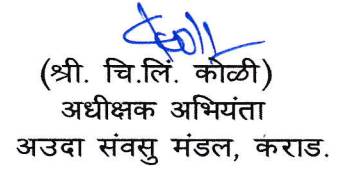 (श्री. चि.लिं. कोळी)
अधीक्षक अभियंता
अउदा संवसु मंडल, कराड.